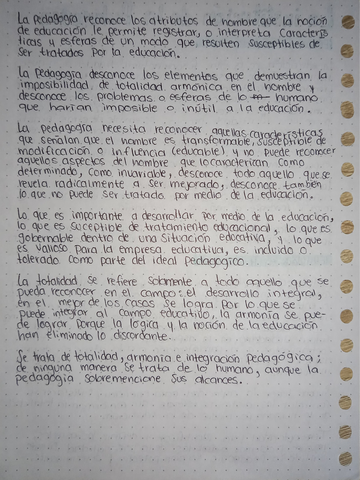 La Pedagogía reconoce los atributos de hombre que la noción
de educación le permite registrar, o interpreta caracterís
ticas y esferas de un modo que resulten susceptibles de
ser tratados por la educación.
La pedagogía desconoce los elementos que demuestran la
imposibilidad de totalidad armónica en el hombre y
desconoce los problemas o esferas de lo humano
que harían imposible o inútil a la educación.
La pedagogía necesita reconocer aquellas características
que señalan que el hombre es transformable, susceptible de
modificación o influencia (educable) y no puede reconocer
aquellos aspectos del hombre que lo caracterizan como
determinado, como invariable, desconoce todo aquello que se
revela radicalmente a ser mejorado, desconoce también
lo que no puede ser tratado por medio de la educación.
Lo que es importante a desarrollar por medio de la educación,
lo que es suceptible de tratamiento educacional, lo que es
gobernable dentro de una situación educativa, y lo que
es valioso para la empresa educativa, es incluido o
tolerado como parte del ideal pedagógico.
La totalidad se refiere solamente a todo aquello que se
pueda reconocer en el campo: el desarrollo integral,
en el mejor de los casos se logra por lo que se
puede integrar al campo educativo, la armonía se pue-
de lograr porque la lógica y la noción de la educación
han eliminado lo discordante.
Se trata de totalidad, armonía e integración pedagógica;
de ninguna manera se trata de lo humano, aunque la
pedagogía sobremencione sus alcances.